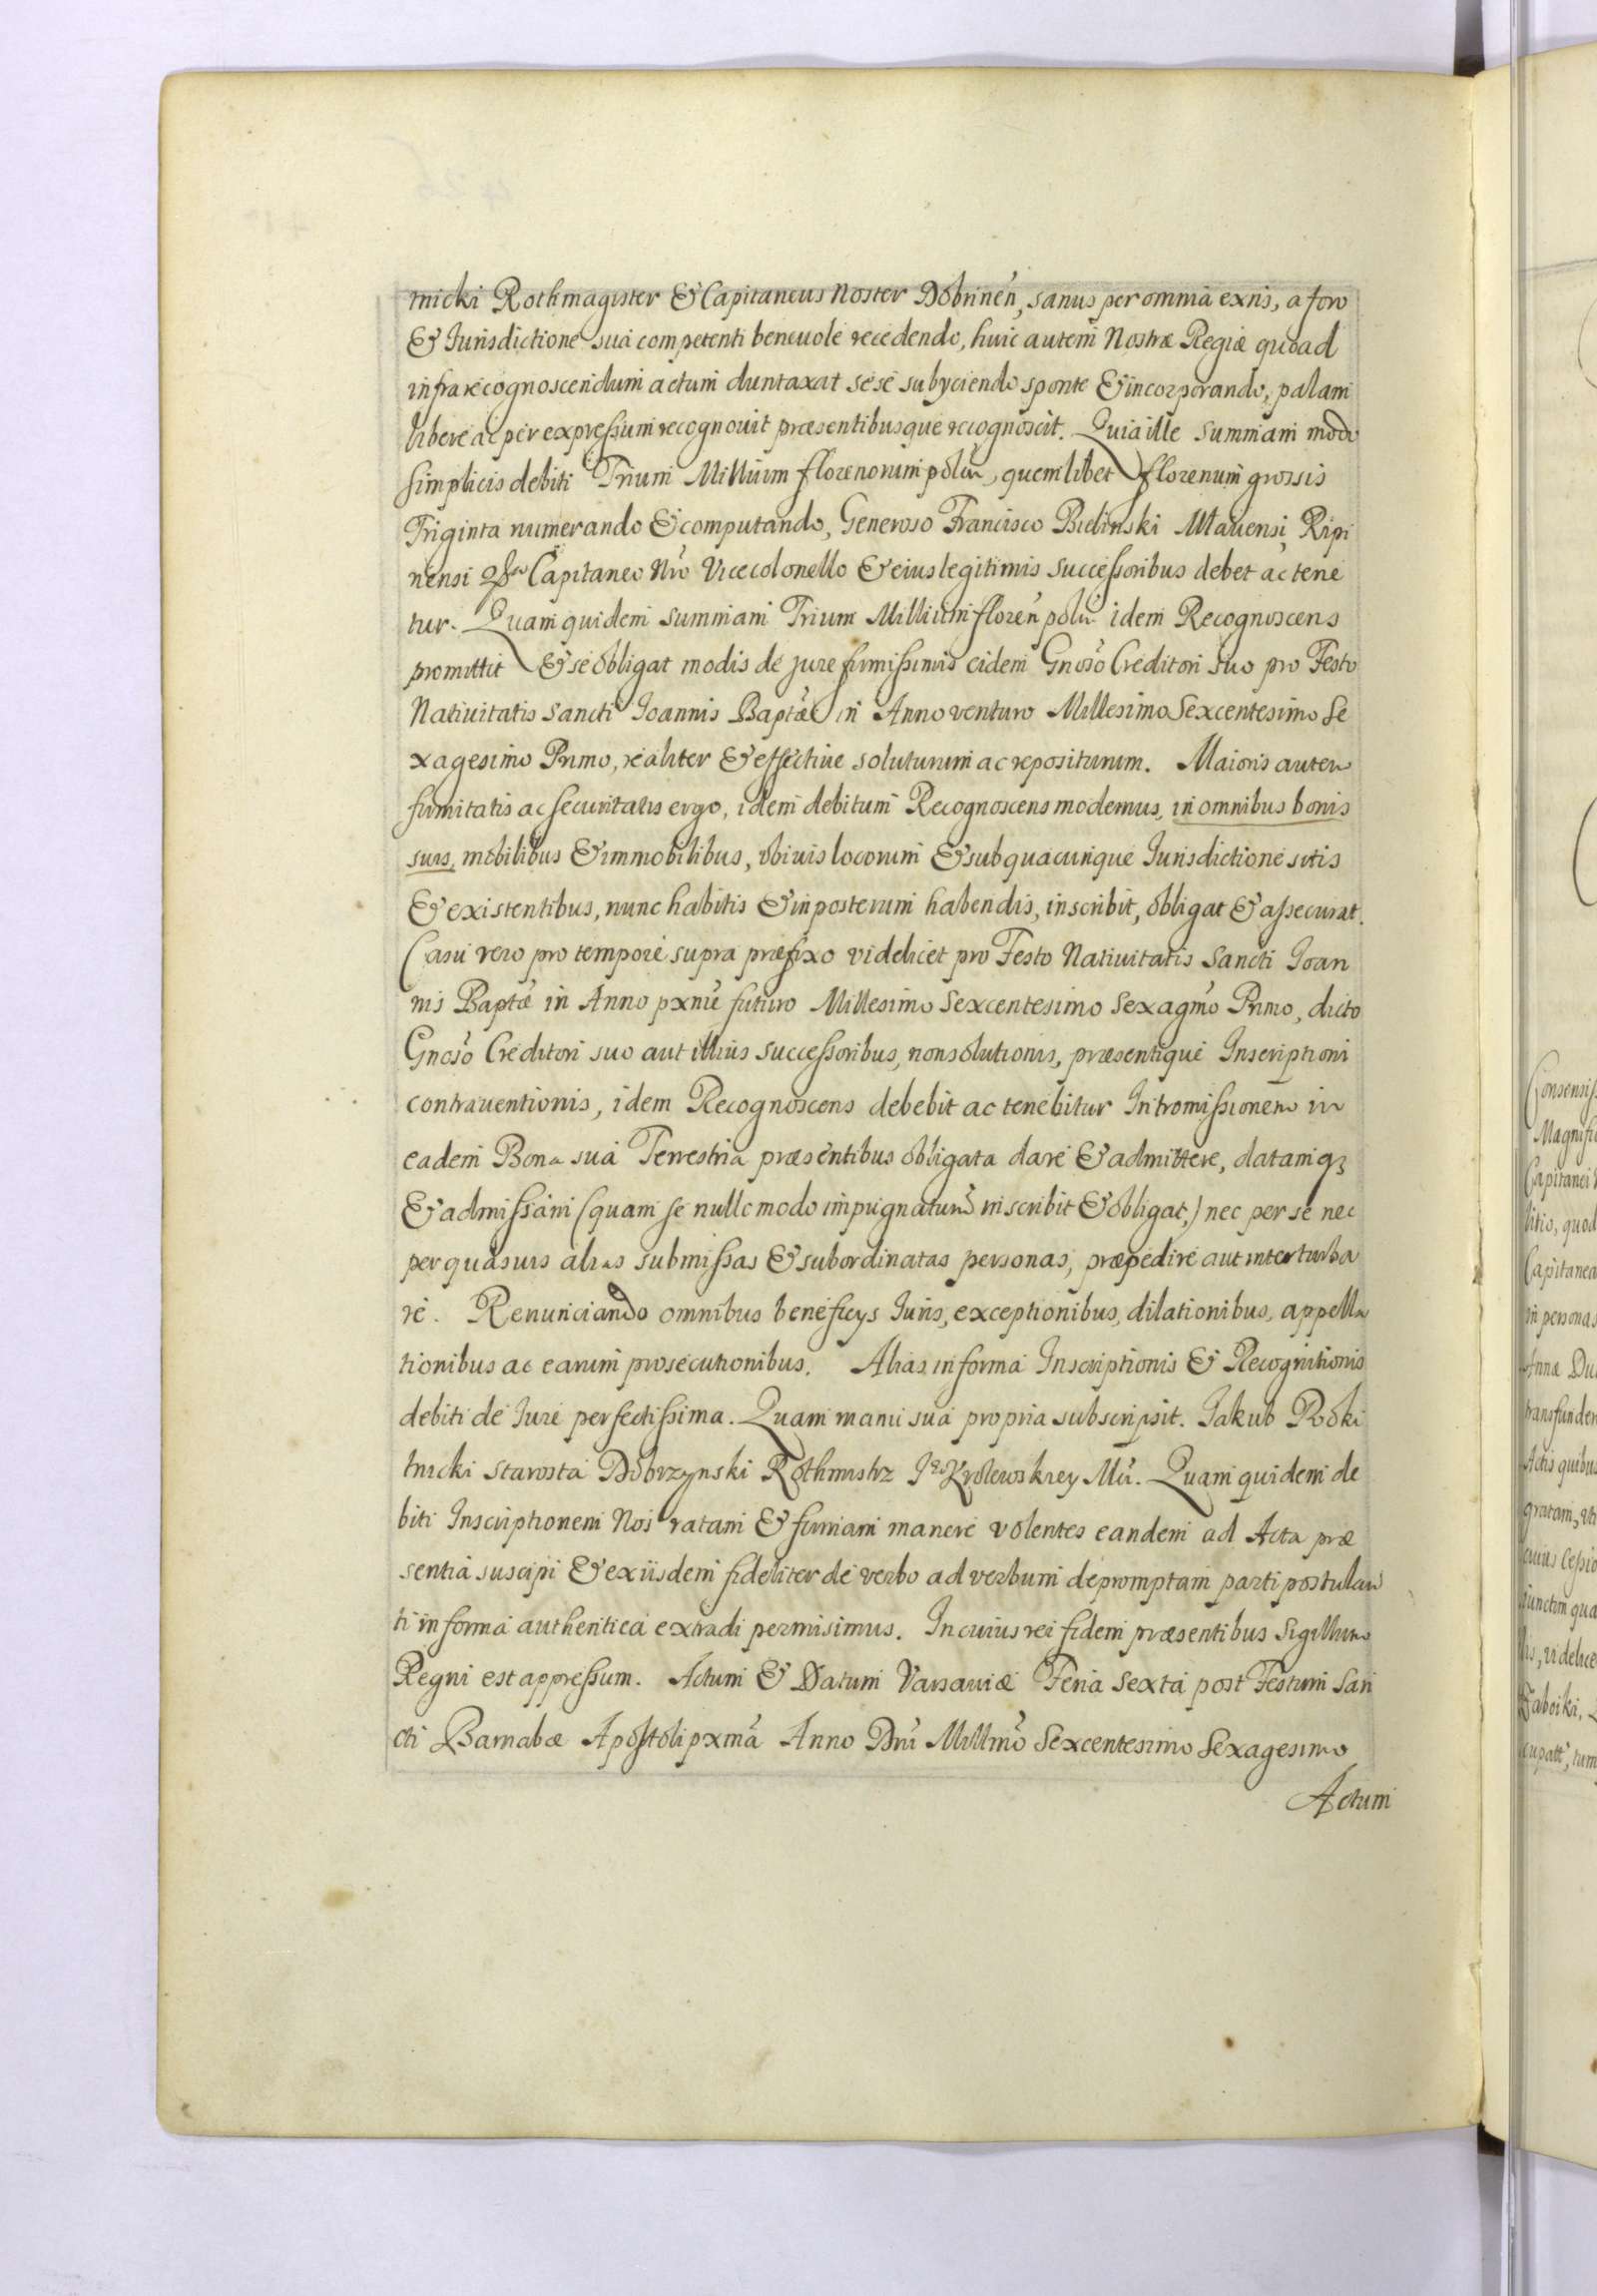 tnicki Rothmagister & Capitaneus Noster Dobrinen̄, sanus per omnia exn̄s, a foro
& Jurisdictione sua competenti beneuole recedendo, huic autem Nostræ Regiæ quoad
infra recognoscendum actum duntaxat sese subyciendo sponte & incorporando, palam
libere ac per expressum recognouit præsentibusque recognoscit. Quia ille summam modo
simplicis debiti Trium Millium florenorum polon̄, quemlibet florenum grossis
Triginta numerando & computando, Generoso Francisco Bielinski Mlauensi, Ripi
nensi Capitaneo Nr̄o Vicecolonello & eius legitimis successoribus debet ac tene
tur. Quam quidem summam Trium Millium floren̄ polon̄ idem Recognoscens
promittit & se obligat modis de jure firmissimis eidem Gnoso Creditori suo pro Festo
Natiuitatis Sancti Joannis Baptæ in Anno venturo Millesimo Sexcentesimo Se
xagesimo Primo, realiter & effectiue soluturum ac repositurum. Maioris autem
firmitatis ac securitatis ergo, idem debitum Recognoscens modernus, in omnibus bonis
suis, mobilibus & immobilibus, vbiuis locorum & sub quacunque Jurisdictione sitis
& existentibus, nunc habitis & in posterum habendis, inscribit, obligat & assecurat.
Casu vero pro tempore supra præfixo videlicet pro Festo Natiuitatis Sancti Joan
nis Baptæ in Anno pxnē futuro Millesimo Sexcentesimo Sexagm̄o Primo, dicto
Gnoso Creditori suo aut illius successoribus, non solutionis, præsentique Inscriptioni
contrauentionis, idem Recognoscens debebit ac tenebitur Intromissionem in
eadem Bona sua Terrestria præsentibus obligata dare & admittere, datamqꝫ
& admissam (quam se nullo modo impugnatur̄ inscribit & obligat,) nec per se nec
per quasuis alias submissas & subordinatas personas, præpedire aut interturba
re. Renunciando omnibus beneficys Juris, exceptionibus, dilationibus, appella
tionibus ac earum prosecutionibus. Alias in forma Inscriptionis & Recognitionis
debiti de Jure perfectissima. Quam manu sua propria subscripsit. Jakub Roski
tnicki starosta Dobrzynski Rothmistrz Je͞o Krolewskiey Mći. Quam quidem de
biti Inscriptionem Nos ratam & firmam manere volentes eandem ad Acta præ
sentia suscipi & ex iisdem fideliter de verbo ad verbum depromptam parti postulan
ti in forma authentica extradi permisimus. In cuius rei fidem præsentibus Sigillum
Regni est appressum. Actum & Datum Varsauiæ Feria Sexta post Festum San
cti Barnabæ Apostoli pxmā Anno Dn̄i Millm̄o Sexcentesimo Sexagesimo
Actum